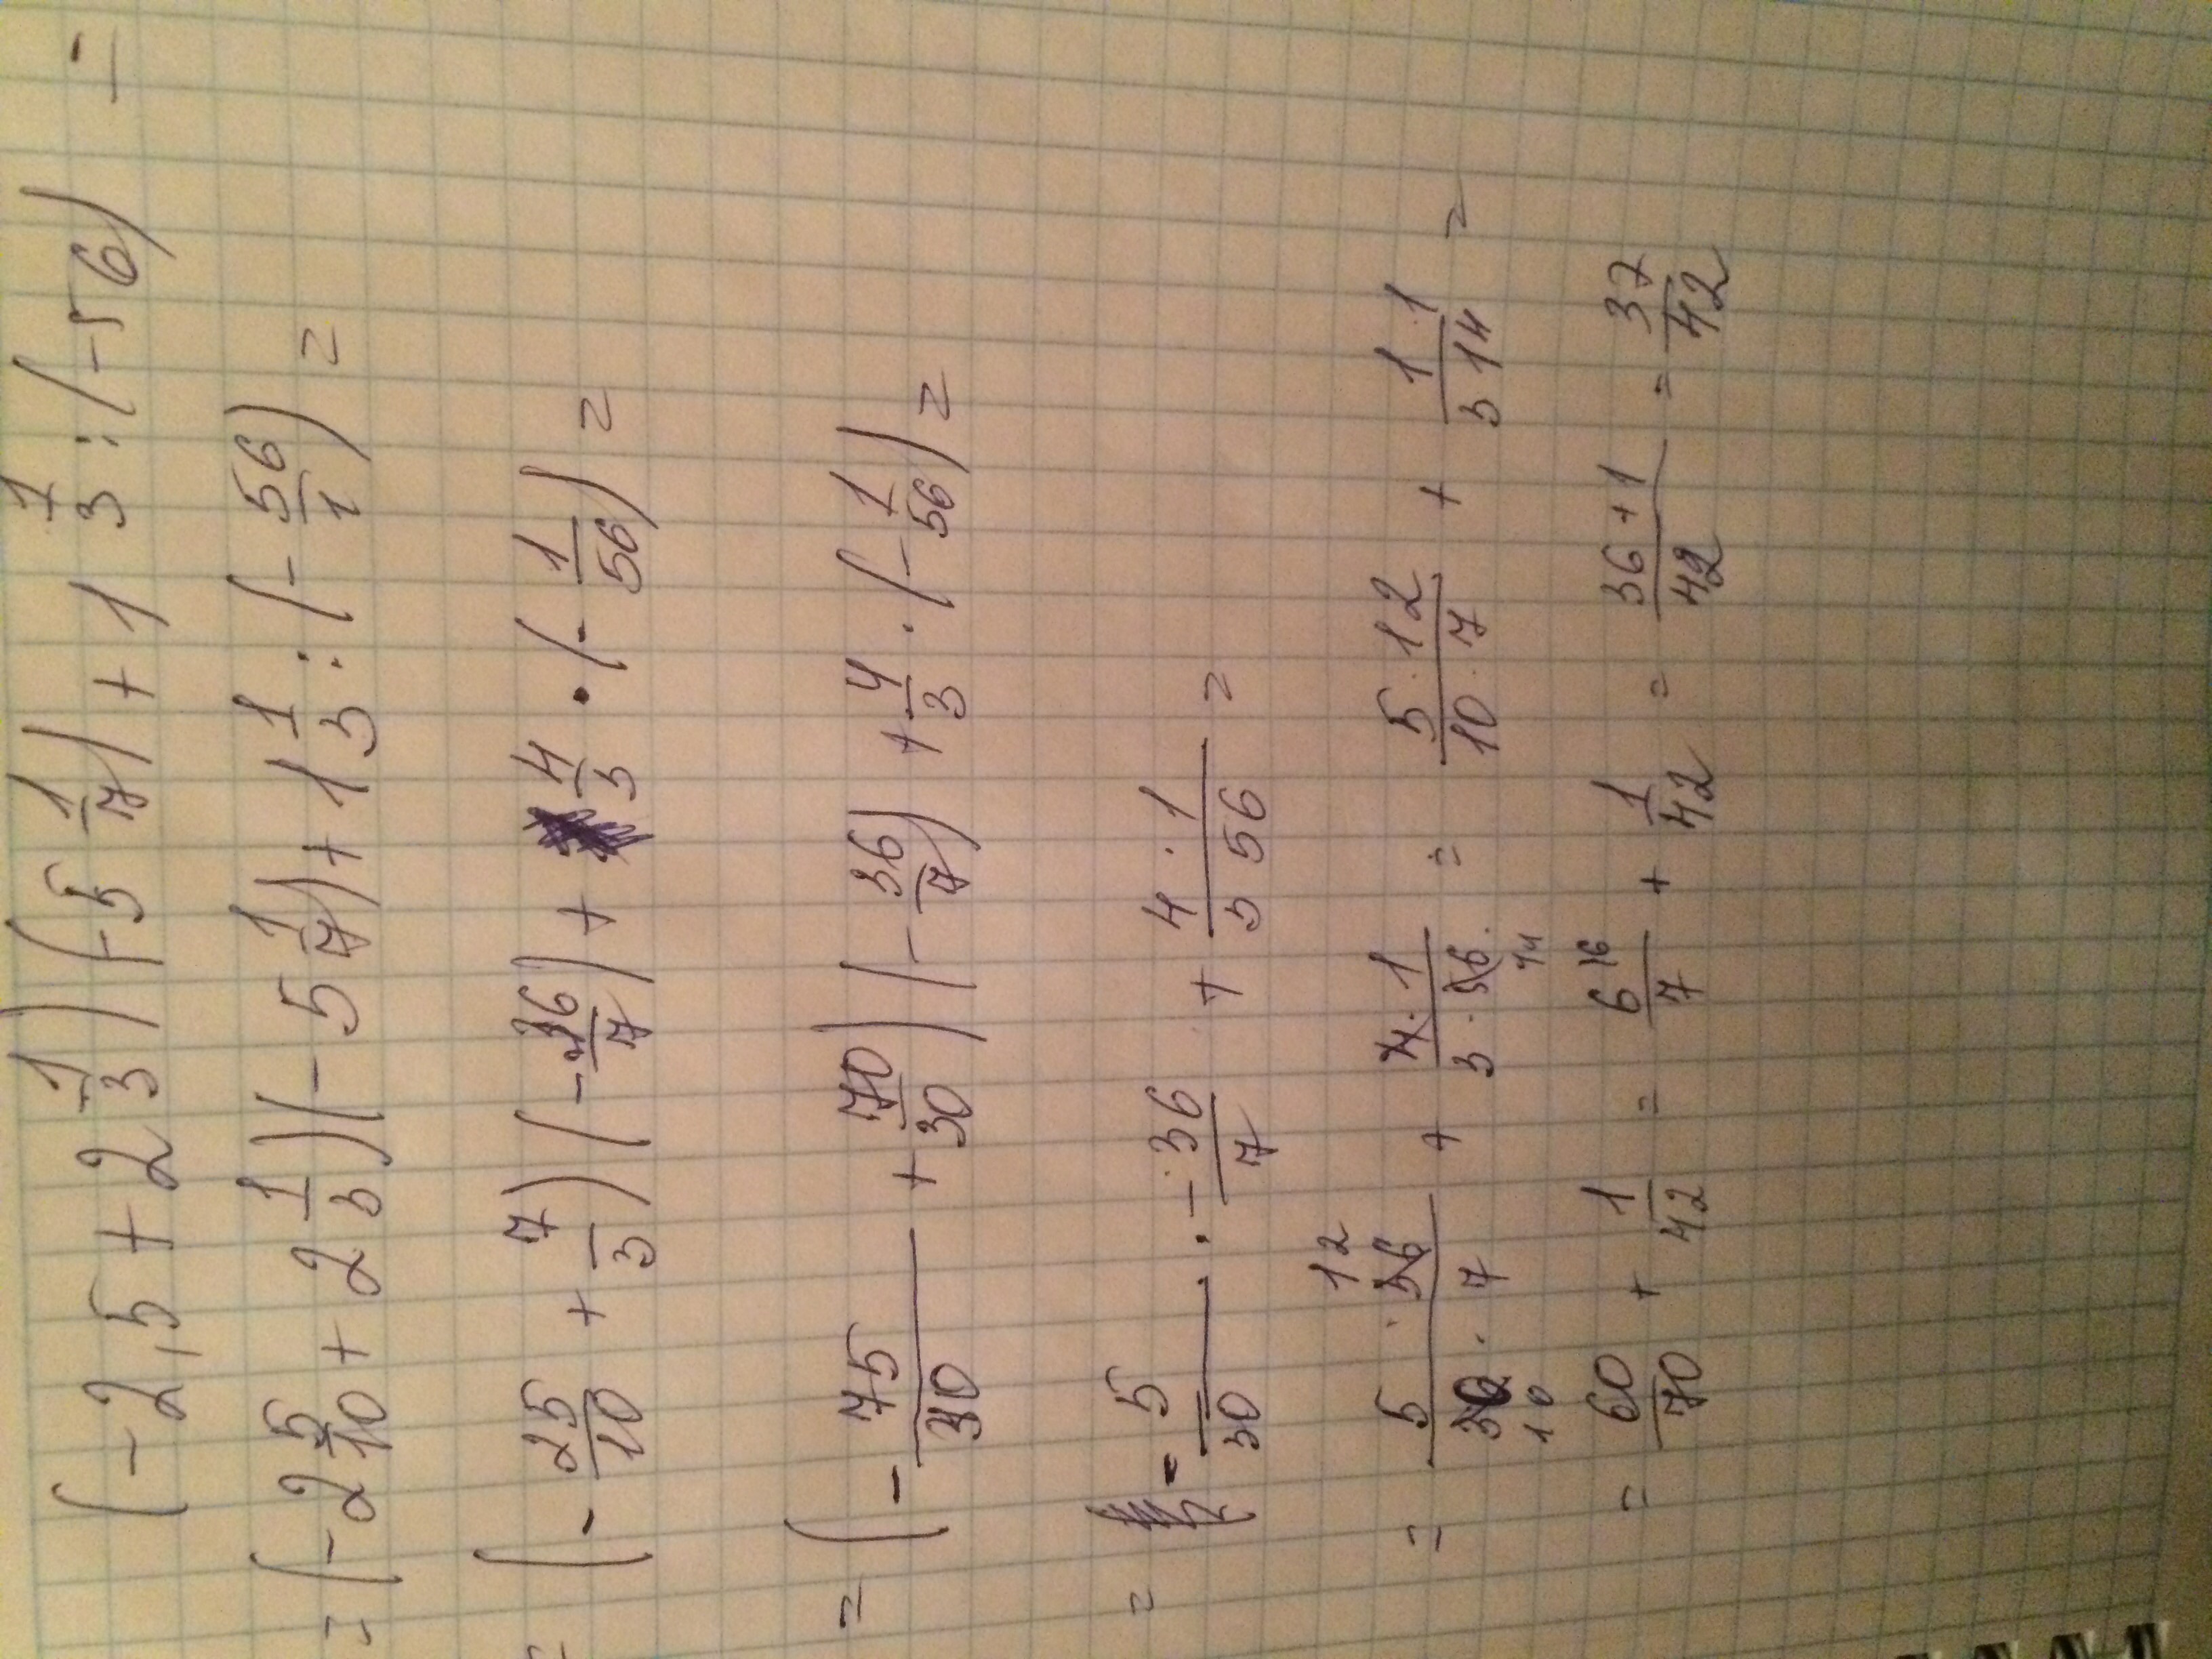 (-2,5 + 2 1/3) (-5 1/7) + 1 1/3 : (-56) =
= (-2 5/10 + 2 1/3) (-5 1/7) + 1 1/3 : (-56/1) =
(-25/10 + 7/3) (-36/7) + 4/3 · (-1/56) =
= (-75/30 + 70/30) (-36/7) + 4/3 · (-1/56) =
= -5/30 · -36/7 + 4·1/3 56 =
= 5 · 36 12/30 10 · 7 + 4·1/3·56 14 = 5·12/10·7 + 1·1/3 14 =
= 60/70 + 1/42 = 6 16/7 + 1/42 = 36+1/42 = 37/42